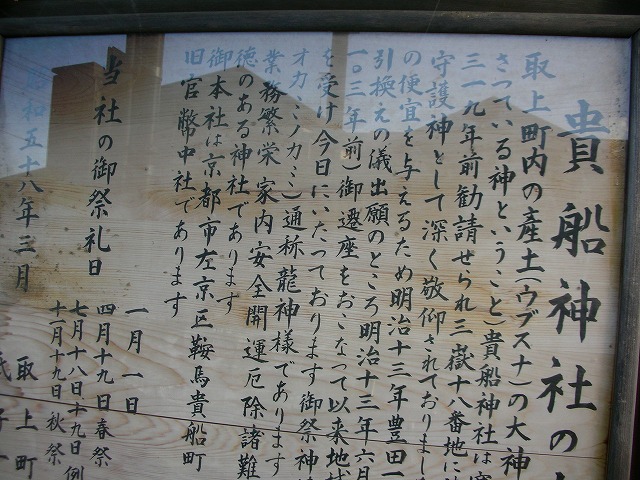 貴船神社の
取上町内の産土(ウブスナ)の大神
さっている神ということ)貴船神社は
三一九年前勧請せられ三嶽十八番地に
守護神として深く敬仰されておりまし
の便宜を与えるため明治十三年豊田一
引換えの儀出願のところ明治十三年六月
一〇三年前)御遷座をおこなって以来地
を受け今日にいたっております御祭神
オカミノカミ)通称龍神様であります
業務繁栄家内安全開運厄除諸難
徳のある神社であります
御本社は京都市左京区鞍馬貴船町
旧官幣中社であります
当社の御祭礼日
一月一日
四月十九日春祭
七月十八日十九日例
十一月十九日秋祭
昭和五十八年三月
取上町
氏子一